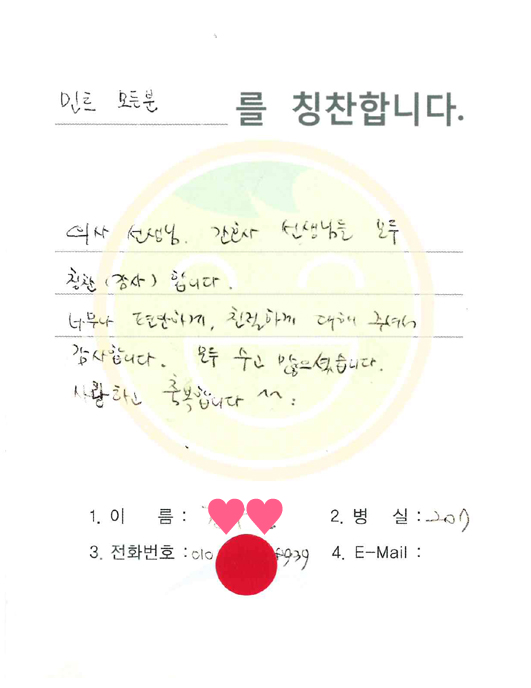 민트 모든분 를 칭찬합니다.
의사 선생님. 간호사 선생님들 모두
칭찬(감사) 합니다.
너무나 편안하게, 친절하게 대해 주셔서
감사합니다. 모두 수고 많으셨습니다.
사랑하고 축복합니다 ^^:
1. 이 름 : 2. 병 실 : 207
3. 전화번호 : 010 8939 4. E-Mail :